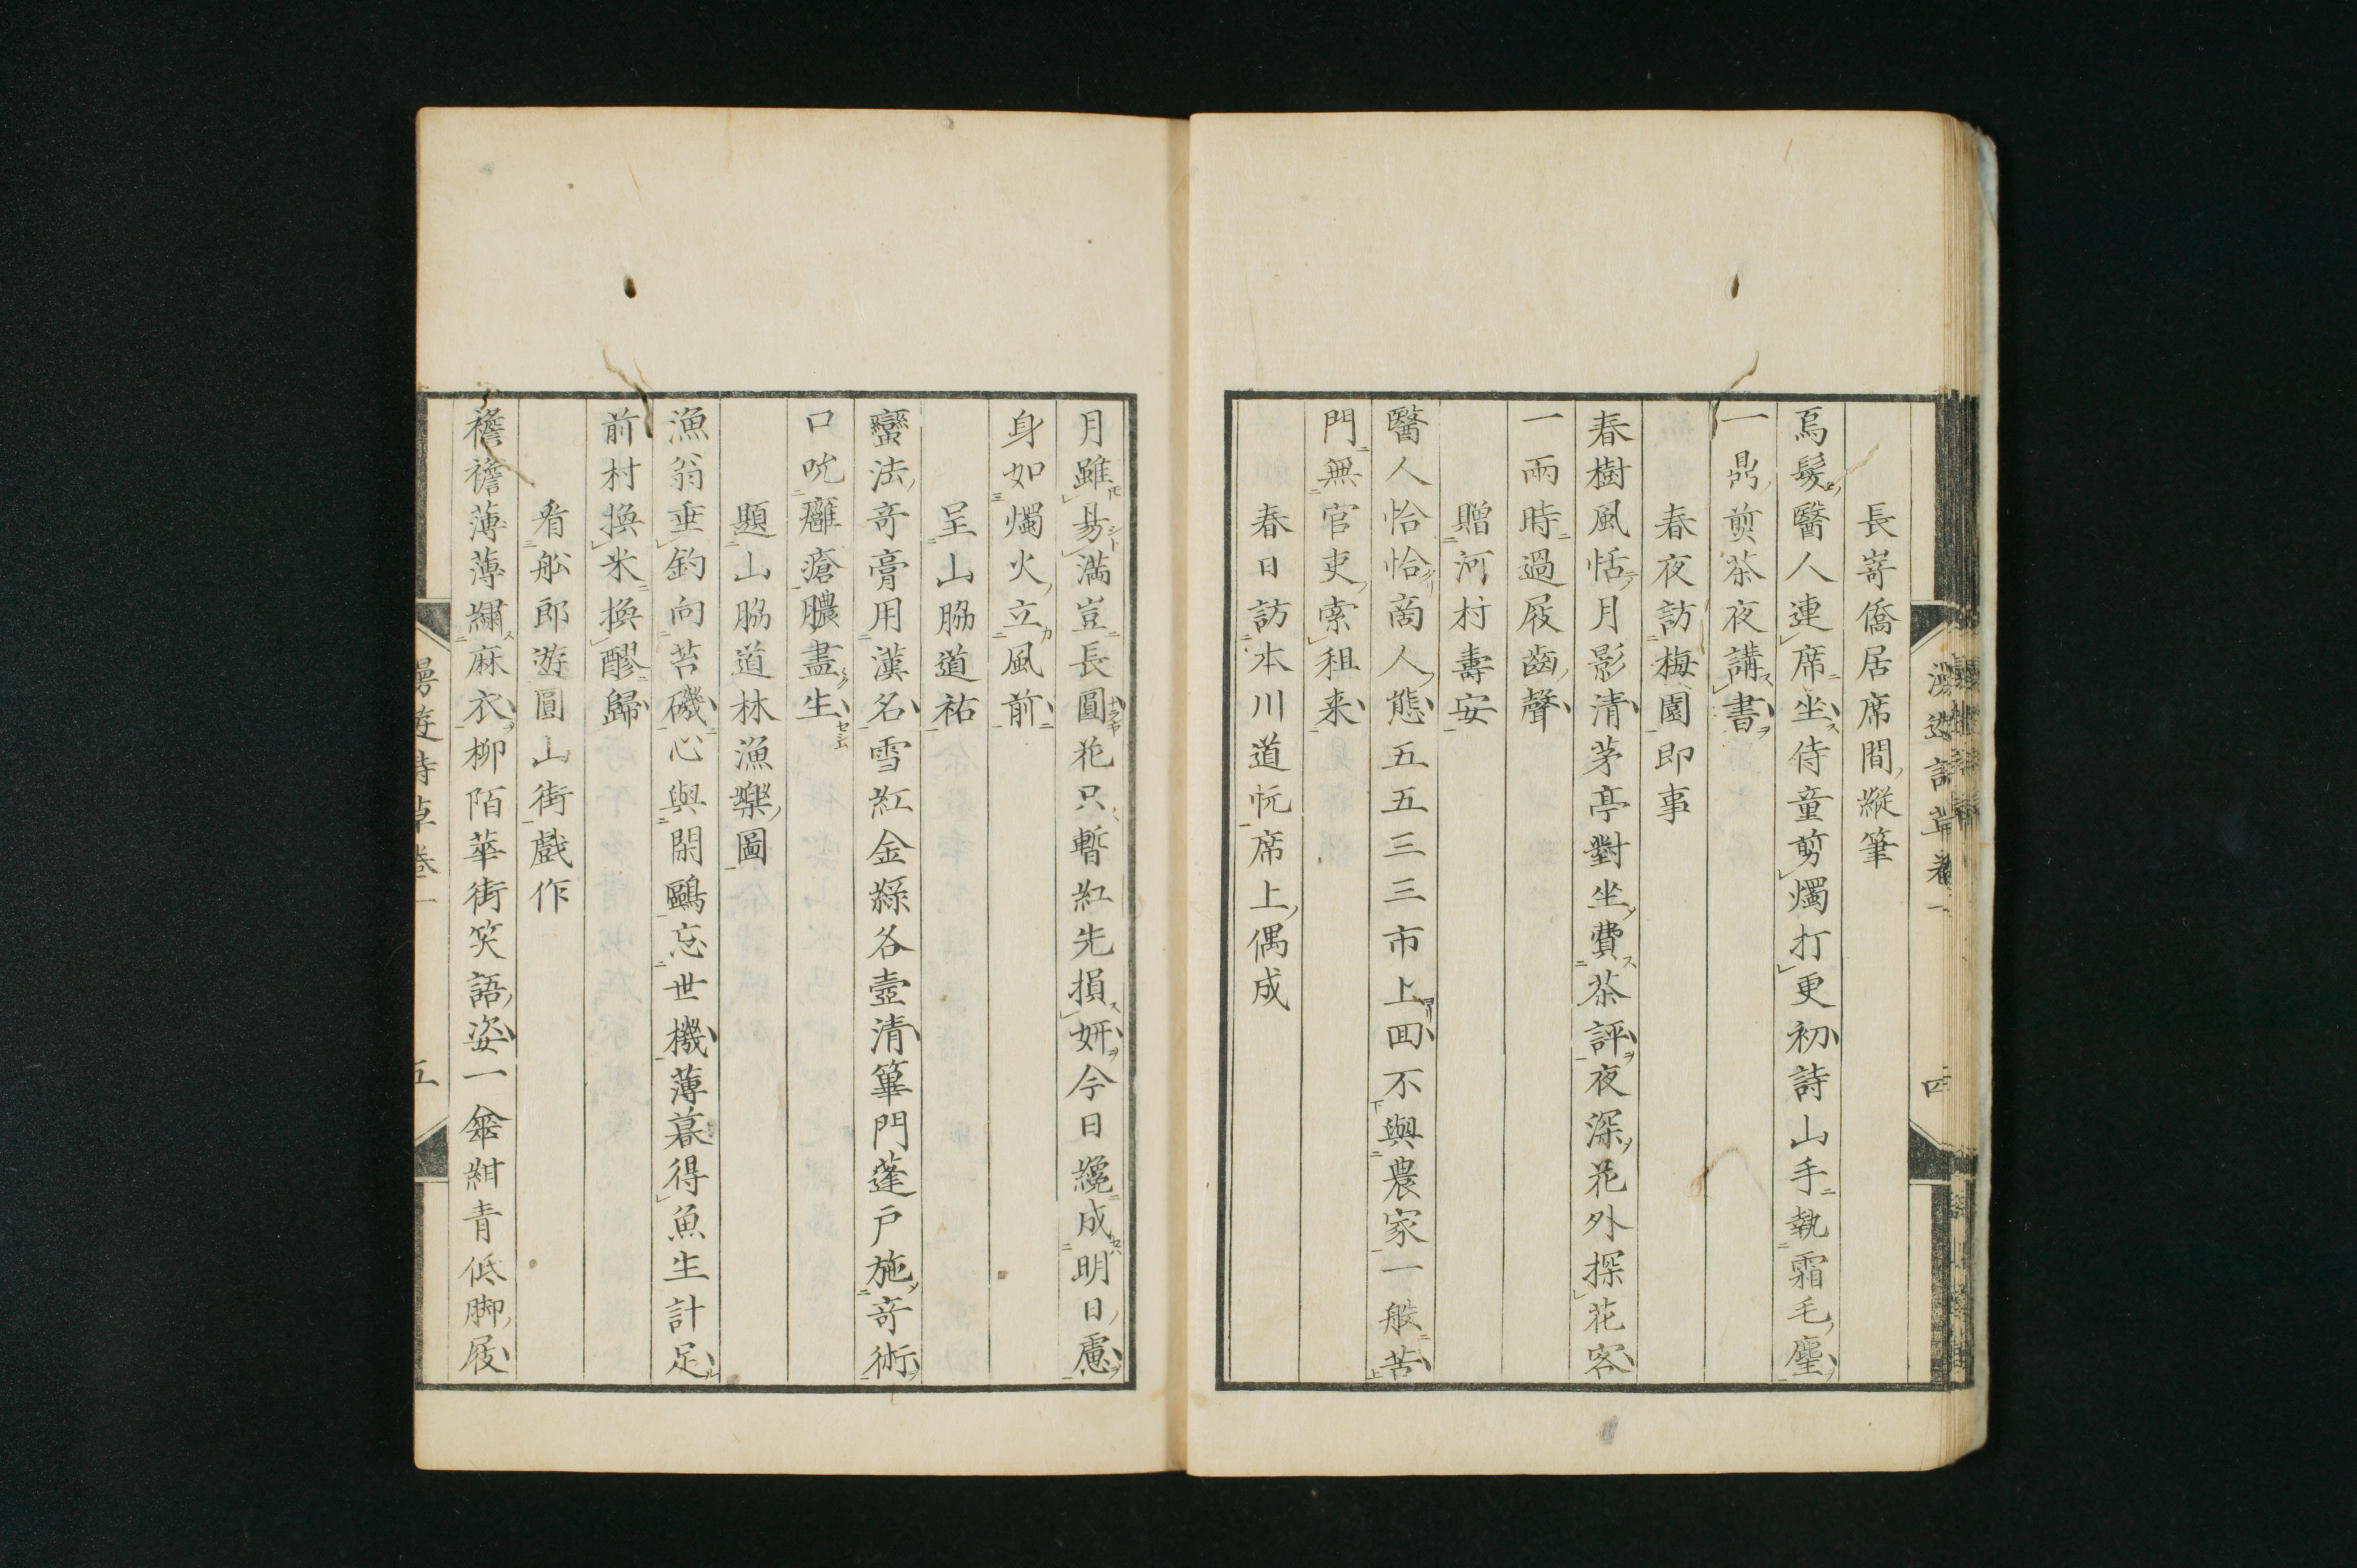 長嵜僑居席間縱筆
烏髮醫人連席坐侍童剪燭打更初詩山手執霜毛麈
一鼎煎茶夜講書
春夜訪梅園即事
春樹風恬月影清茅亭對坐費茶評夜深花外探花客
一兩時過屐齒聲
贈河村壽安
醫人恰恰啇人態五五三三市上回不與農家一般苦
門無官吏索租来
春日訪本川道忨席上偶成
月雖易滿豈長圓花只暫紅先損妍今日纔成明日慮
身如燭火立風前
呈山脇道祐
蠻法竒膏用漢名雪紅金綵各壺清篳門蓬戸施竒術
口吮癰瘡膿盡生
題山脇道林漁樂圖
漁翁垂釣向苔磯心與閑鷗忘世機薄暮得魚生計足
前村換米換醪歸
看舩郎游圓山街戲作
襜襜薄薄繝麻衣柳陌華街笑語姿一傘紺青低脚屐
漫遊詩草卷一
五